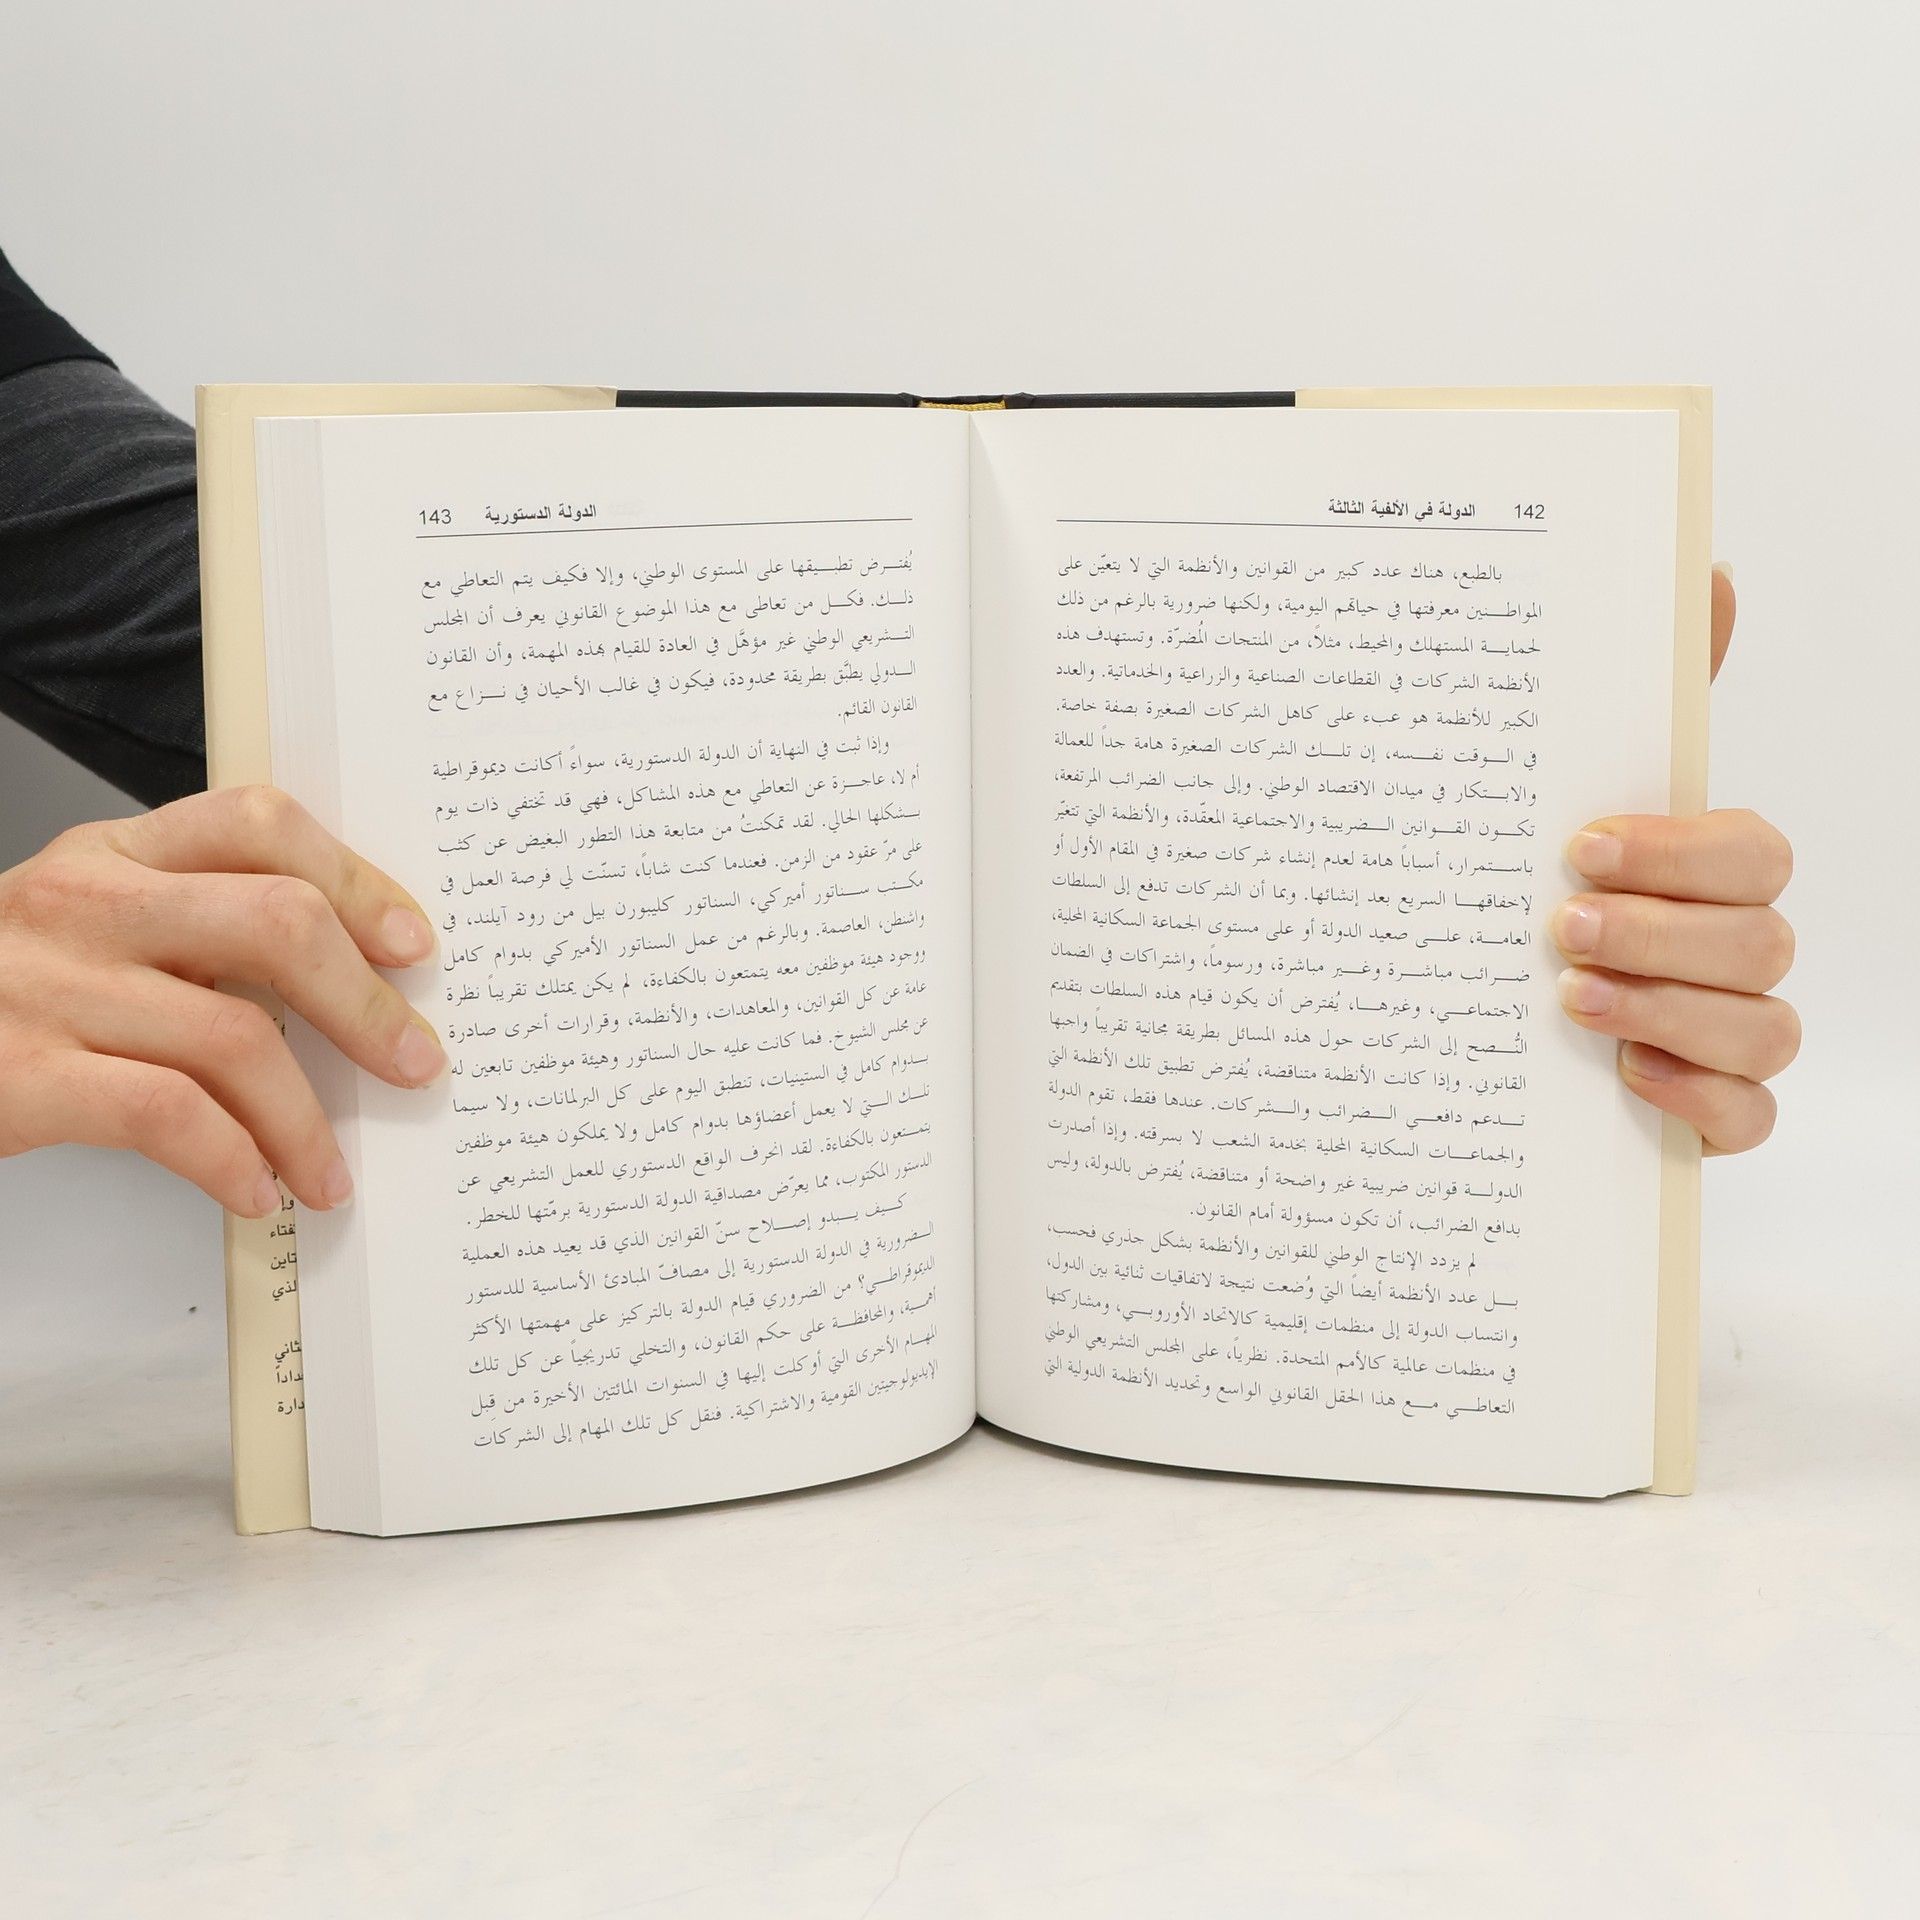 142 الدولة في الألفية الثالثة
بالطبع، هناك عدد كبير من القوانين والأنظمة التي لا يتعيّن على
المواطنين معرفتها في حياتهم اليومية، ولكنها ضرورية بالرغم من ذلك
لحماية المستهلك والمحيط، مثلاً، من المنتجات المُضرّة. وتستهدف هذه
الأنظمة الشركات في القطاعات الصناعية والزراعية والخدماتية. والعدد
الكبير للأنظمة هو عبء على كاهل الشركات الصغيرة بصفة خاصة.
في الوقت نفسه، إن تلك الشركات الصغيرة هامة جداً للعمالة
والابتكار في ميدان الاقتصاد الوطني. وإلى جانب الضرائب المرتفعة،
تكون القوانين الضريبية والاجتماعية المعقّدة، والأنظمة التي تتغيّر
باستمرار، أسباباً هامة لعدم إنشاء شركات صغيرة في المقام الأول أو
لإخفاقها السريع بعد إنشائها. وبما أن الشركات تدفع إلى السلطات
العامة، على صعيد الدولة أو على مستوى الجماعة السكانية المحلية،
ضرائب مباشرة وغير مباشرة، ورسوماً، واشتراكات في الضمان
الاجتماعي، وغيرها، يُفترض أن يكون قيام هذه السلطات بتقديم
النُّصح إلى الشركات حول هذه المسائل بطريقة مجانية تقريباً واجبها
القانوني. وإذا كانت الأنظمة متناقضة، يُفترض تطبيق تلك الأنظمة التي
تدعم دافعي الضرائب والشركات. عندها فقط، تقوم الدولة
والجماعات السكانية المحلية بخدمة الشعب لا بسرقته. وإذا أصدرت
الدولة قوانين ضريبية غير واضحة أو متناقضة، يُفترض بالدولة، وليس
بدافع الضرائب، أن تكون مسؤولة أمام القانون.
لم يزدد الإنتاج الوطني للقوانين والأنظمة بشكل جذري فحسب،
بل عدد الأنظمة أيضاً التي وُضعت نتيجة لاتفاقيات ثنائية بين الدول،
وانتساب الدولة إلى منظمات إقليمية كالاتحاد الأوروبي، ومشاركتها
في منظمات عالمية كالأمم المتحدة. نظرياً، على المجلس التشريعي الوطني
التعاطي مع هذا الحقل القانوني الواسع وتحديد الأنظمة الدولية التي
الدولة الدستورية 143
يُفترض تطبيقها على المستوى الوطني، وإلا فكيف يتم التعاطي مع
ذلك. فكل من تعاطى مع هذا الموضوع القانوني يعرف أن المجلس
التشريعي الوطني غير مؤهَّل في العادة للقيام بهذه المهمة، وأن القانون
الدولي يطبَّق بطريقة محدودة، فيكون في غالب الأحيان في نزاع مع
القانون القائم.
وإذا ثبت في النهاية أن الدولة الدستورية، سواءً أكانت ديموقراطية
أم لا، عاجزة عن التعاطي مع هذه المشاكل، فهي قد تختفي ذات يوم
بشكلها الحالي. لقد تمكنتُ من متابعة هذا التطور البغيض عن كثب
على مرّ عقود من الزمن. فعندما كنت شاباً، تسنّت لي فرصة العمل في
مكتب سناتور أميركي، السناتور كليبورن بيل من رود آيلند، في
واشنطن، العاصمة. وبالرغم من عمل السناتور الأميركي بدوام كامل
ووجود هيئة موظفين معه يتمتعون بالكفاءة، لم يكن يمتلك تقريباً نظرة
عامة عن كل القوانين، والمعاهدات، والأنظمة، وقرارات أخرى صادرة
عن مجلس الشيوخ. فما كانت عليه حال السناتور وهيئة موظفين تابعين له
بدوام كامل في الستينيات، تنطبق اليوم على كل البرلمانات، ولا سيما
تلك التي لا يعمل أعضاؤها بدوام كامل ولا يملكون هيئة موظفين
يتمتعون بالكفاءة. لقد انحرف الواقع الدستوري للعمل التشريعي عن
الدستور المكتوب، مما يعرّض مصداقية الدولة الدستورية برمّتها للخطر.
كيف يبدو إصلاح سنّ القوانين الذي قد يعيد هذه العملية
الضرورية في الدولة الدستورية إلى مصافّ المبادئ الأساسية للدستور
الديموقراطي؟ من الضروري قيام الدولة بالتركيز على مهمتها الأكثر
أهمية، والمحافظة على حكم القانون، والتخلي تدريجياً عن كل تلك
المهام الأخرى التي أوكلت إليها في السنوات المائتين الأخيرة من قِبل
الإيديولوجيتين القومية والاشتراكية. فنقل كل تلك المهام إلى الشركات